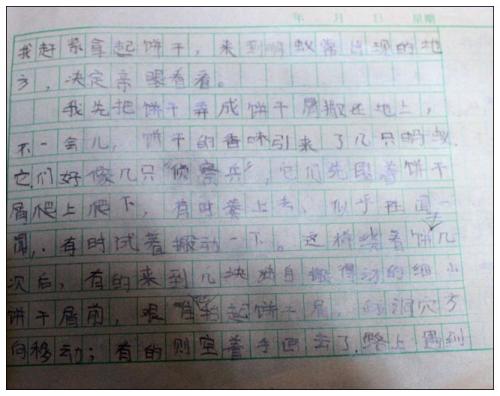 年 月 日 星期
我赶紧拿起饼干，来到蚂蚁常出现的地
方，决定亲眼看看。
我先把饼干弄成饼干屑撒在地上，
不一会儿，饼干的香味引来了几只蚂蚁。
它们好像几只“侦察兵”，它们先围着饼干
屑爬上爬下，有时凑上去，似乎在闻一
闻，有时试着搬动一下。这样绕着饼几
次后，有的来到几块自搬得动的细小
饼干屑前，起饼干屑，向洞穴方
向移动；有的则空着手回去了，路上遇到